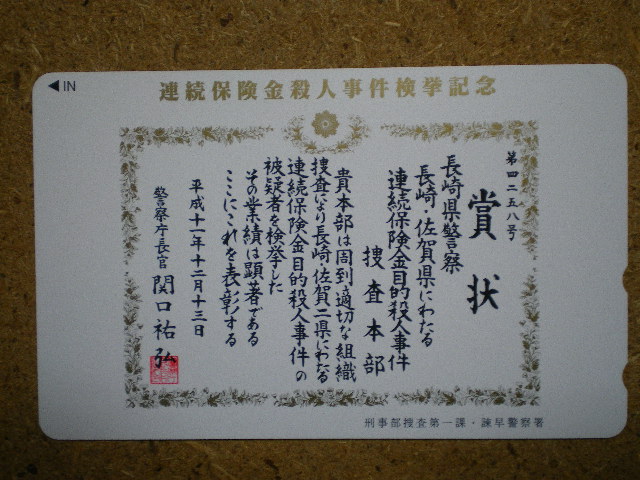 ◀IN
連続保険金殺人事件検挙記念
第四二五八号
賞状
長崎県警察
長崎・佐賀県にわたる
連続保険金目的殺人事件
捜査本部
貴本部は周到適切な組織
捜査により長崎・佐賀二県にわたる
連続保険金目的殺人事件の
被疑者を検挙した
その業績は顕著である
ここにこれを表彰する
平成十一年十二月十三日
警察庁長官 関口祐弘
刑事部捜査第一課・諫早警察署